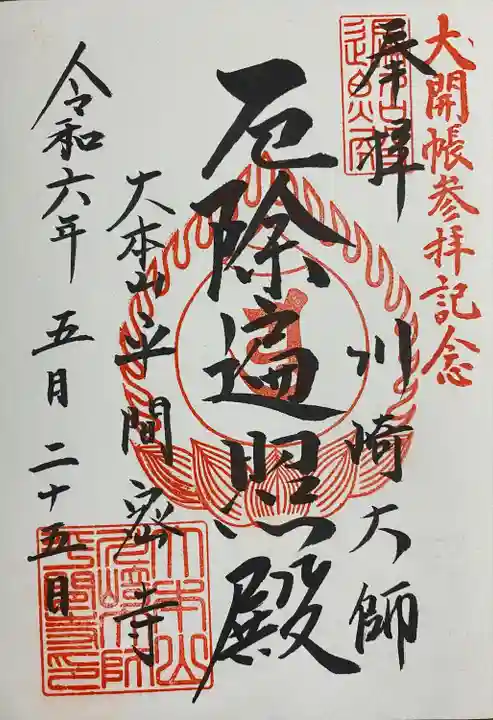 大開帳参拝記念
奉拝
川崎大師
厄除遍照殿
大本山平間寺
令和六年五月二十五日